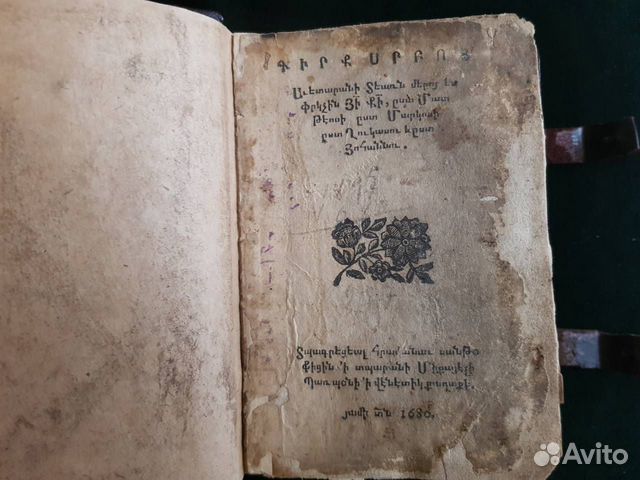 ԳԻՐՔ ՍՐԲՈՅ
Աւետարանի Տեառն մերոյ և
Փրկչին ՅԻ ՔԻ, ըստ Մատ
թէոսի ըստ Մարկոսի
ըստ Ղուկասու և ըստ
Յօհաննու.
Տպագրեցեալ հրամանաւ սանթօ
ֆիցին ՚ի տպարանի Միքայէլի
Պառպօնի ՚ի վէնէտիկ քաղաքէ.
յամի տն 1680.
Avito